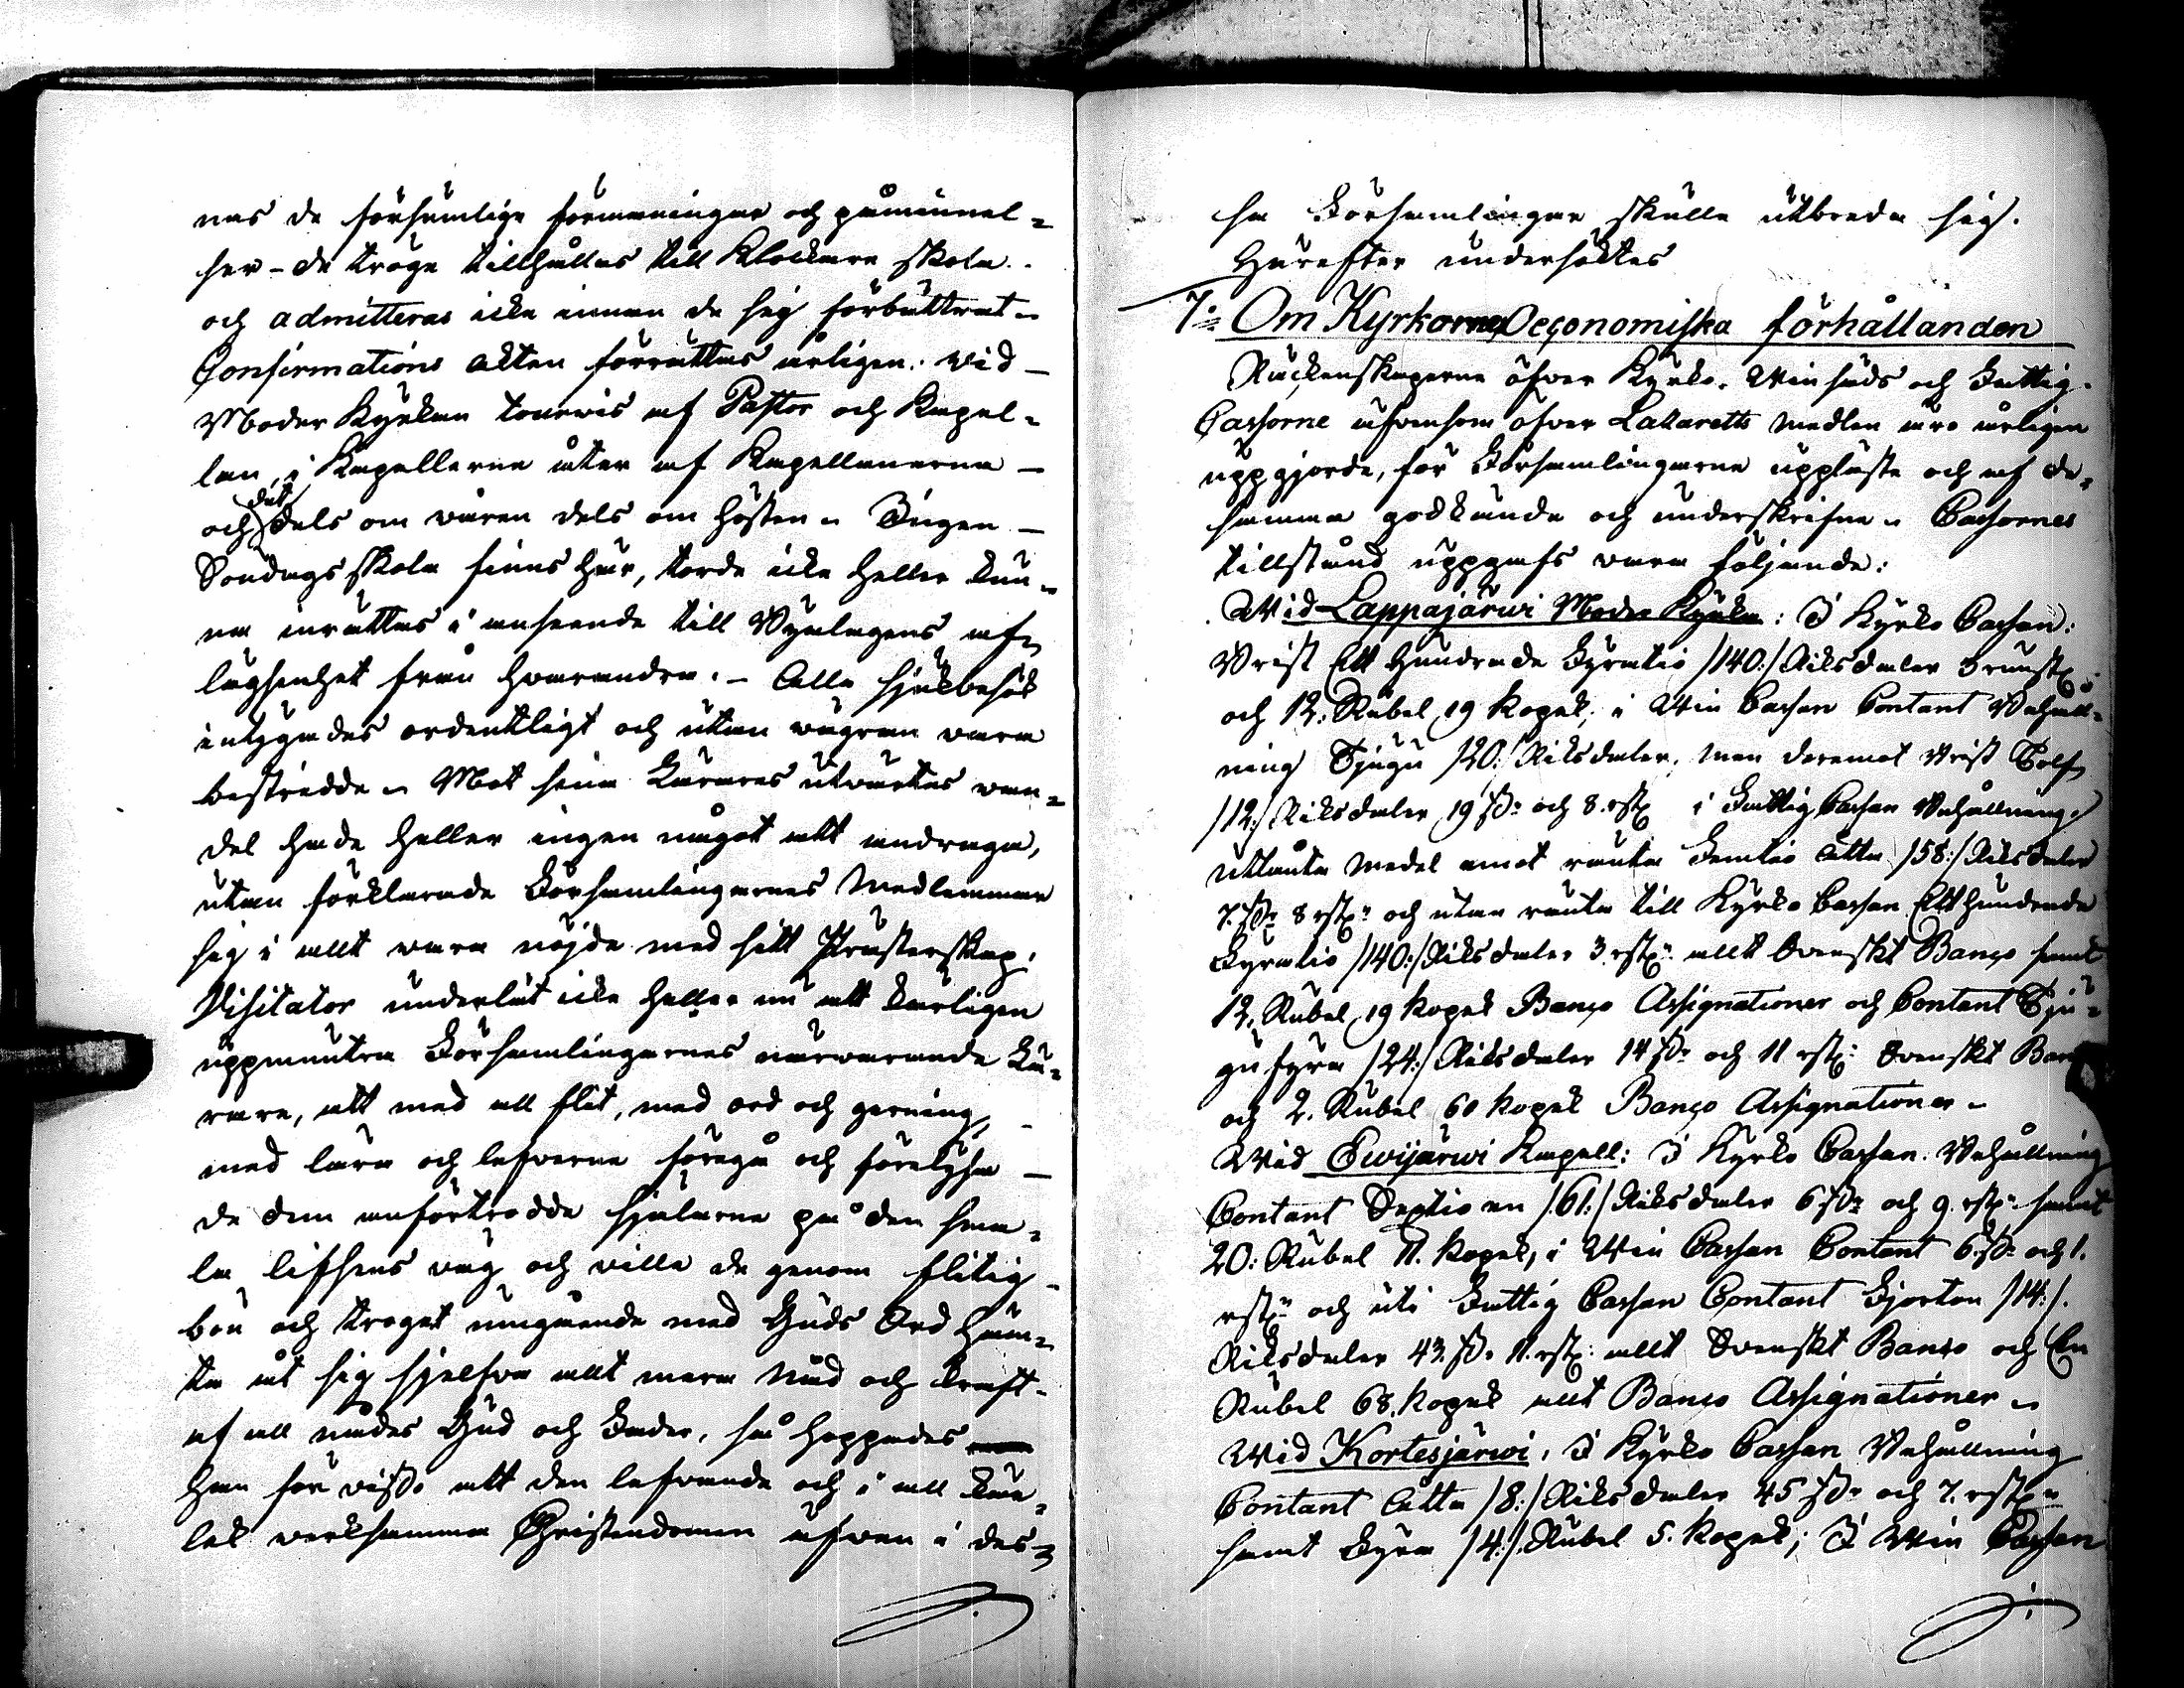 nas de försumlige förmaningar och påminnel=
ser - de tröga tillhållas till Klockare skola.
och admitteras icke innan de sig förbättrat.
Confirmations akten förrättas årligen: vid
Moder Kyrkan tourvis af Pastor och Kapel=
lan, i Kapellerne åter af Kapellanerna
och det dels om våren dels om hösten. Ingen
Söndags skola finns här, torde icke heller kun=
na inrättas i anseende till Byalagens af=
lägsenhet från hvarandra. - Alla sjukbesök
intygades ordentligt och utan vägran vara
bestridde. Mot sina Lärares utvärtes van=
del hade heller ingen något att andraga,
utan förklarade Församlingarnes Medlemmar
sig i allt vara nöjde med sitt Presterskap.
Visitator underlät icke heller nu att kärligen
uppmuntra Församlingarnes närvarande Lä=
rare, att med all flit, med ord och gerning,
med lära och lefverne föregå och förelysa
de dem anförtrodde själarne på den sma=
la lifsens väg och ville de genom flitig
bön och troget umgående med Guds Ord häm=
ta åt sig sjelfva allt mera Nåd och kraft
af all nådes Gud och Fader, så hoppades
han för visso att den lefvande och i all kär=
lek verksamma Christendomen äfven i des=
sa Församlingar skulle utbreda sig.
Härefter undersöktes
7:= Om Kyrkornes Oeconomiska förhållanden
Räckenskaperne öfver Kyrko, Winsäds och Fattig=
Cassorne äfvensom öfver Lazaretts medlen äro årligen
uppgjorde, för Församlingarne uppläste och af de=
samma godkände och underskrifne. Cassornes
tillstånd uppgafs vara följande:
Wid Lappajärwi Moder Kyrka: I Kyrko Cassan:
Brist Ett Hundrade Fyratio /140:/ Riksdaler 3 runst:
och 12: Rubel 19 kopek: i Win Cassan Contant Behåll=
ning Tjugu /20:/ Riksdaler, men deremot brist Tolf
/12:/ Riksdaler 19 sk: och 8. rst: i Fattig Cassan Behållning
utlånte medel emot ränta Femtio åtta /58:/ Riksdaler
7. sk: 8 rst: och utan ränta till Kyrko Cassan Ett hundrade
Fyratio /140:/ Riksdaler 3 rst: allt Svenskt Banco samt
12. Rubel 19 kopek Banco Assignationer och Contant Tju=
gu fyra /24:/ Riksdaler 14 sk: och 11 rst: Svenskt Banco
och 2. Rubel 60 kopek Banco Assignationer.
Wid Ewijärwi Kapell: I Kyrko Cassan Behållning
Contant Sextio en /:61:/ Riksdaler 6 sk: och 9. rst: samt
20: Rubel 11. kopek, i Win Cassan Contant 6. sk: och 1.
rst: och uti Fattig Cassan Contant Fjorton /14:/
Riksdaler 43. sk: 11. rst: allt Svenskt Banco och En
Rubel 68. kopek allt Banco Assignationer.
Wid Kortesjärwi, I Kyrko Cassan Behållning
Contant åtta /8:/ Riksdaler 45 sk: och 7. rst:
samt Fyra /4:/ Rubel 5. kopek; I Win Cassan